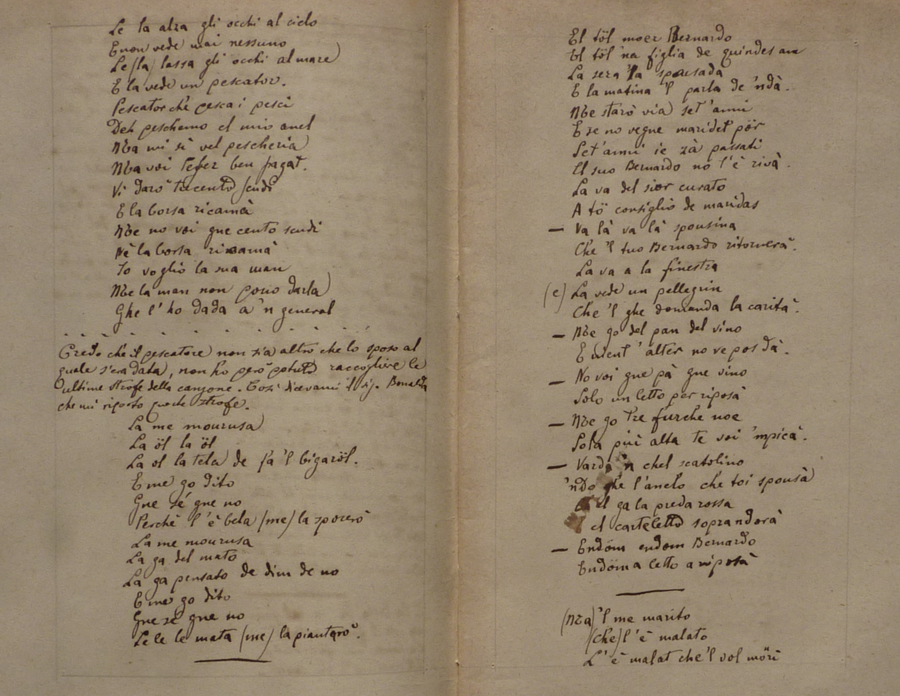 Le la alza gli occhi al cielo
E non vede mai nessuno
Le (la) lassa gli occhi al mare
E la vede un pescator.
Pescator che pesca i pesci
Deh peschemo el mio anel
Ma mi sì vel pescheria
Ma voi l'esser ben pagat.
Vi darò trecento scudi
E la borsa ricamà
Me no voi gne cento scudi
Nè la borsa ricamà
Io voglio la sua man
Me la man non posso darla
Ghe l'ho dada a 'n general
Credo che il pescatore non sia altro che lo sposo al
quale s'era data, non ho però potuto raccogliere le
ultime strofe della canzone. Così dicevami il sig.
che mi riportò queste strofe.
La me mourusa
La öl la öl
La ol la tela de fa 'l bigaröl.
E me go dito
Gne sé gne no
Perchè l'è bela (me) la sposerò
La me mourusa
La ga del mato
La ga pensato de dim de no
E me go dito
Gne sé gne no
Se le le mata (me) la piantarò.
El töl moer Bernardo
El töl 'na figlia de quindes ani
La sera l'a sposada
E la matina 'l parla de 'ndà.
Me starò via set'anni
E se no vegne maridet pör
Set'anni iè zà passati
El suo Bernardo no l'è rivà.
La va del sior curato
A tö consiglio de maridas
— Va là va là sposina
Che 'l tuo Bernardo ritornerà.
La va a la finestra
(e) La vede un pellegrin
Che 'l ghe domanda la carità.
— Me go del pan del vino
E nient'alter no ve pos dà.
— No voi gne pà gne vino
Solo un letto per riposà
— Me go tre furche noe
Sola più alta te voi 'mpicà.
— Vardà 'n chel scatolino
'ndo ghe l'anelo che t'oi sposà
el ga la preda rossa
el carteletto sopra dorà
— Endóm endom Bernardo
Endóm a letto a riposà
(Ma) 'l me marito
(Che) l'è malato
L'è malat che 'l vol möri